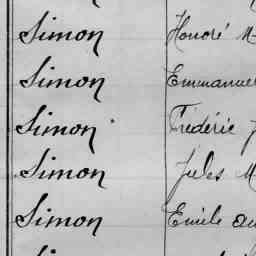 Simon Honoré
Simon Emmanuel
Simon Frédéric
Simon Jules
Simon Emile